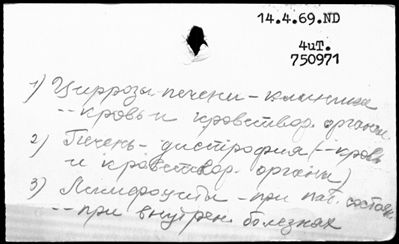 14.4.69.ND
4иТ.
750971
1) Циррозы печени - клиника
-- кровь и кроветвор. органы
2) Печень - дистрофия (-- кровь
и кроветвор. органы)
3) Лимфоциты - при пат. состоян.
-- при внутрен. болезнях